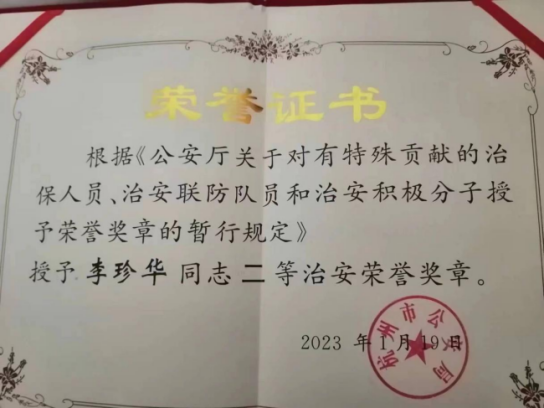 荣誉证书
根据《公安厅关于对有特殊贡献的治
保人员、治安联防队员和治安积极分子授
予荣誉奖章的暂行规定》
授予 李珍华 同志 二 等治安荣誉奖章。
杭州市公安局
2023 年1月19日